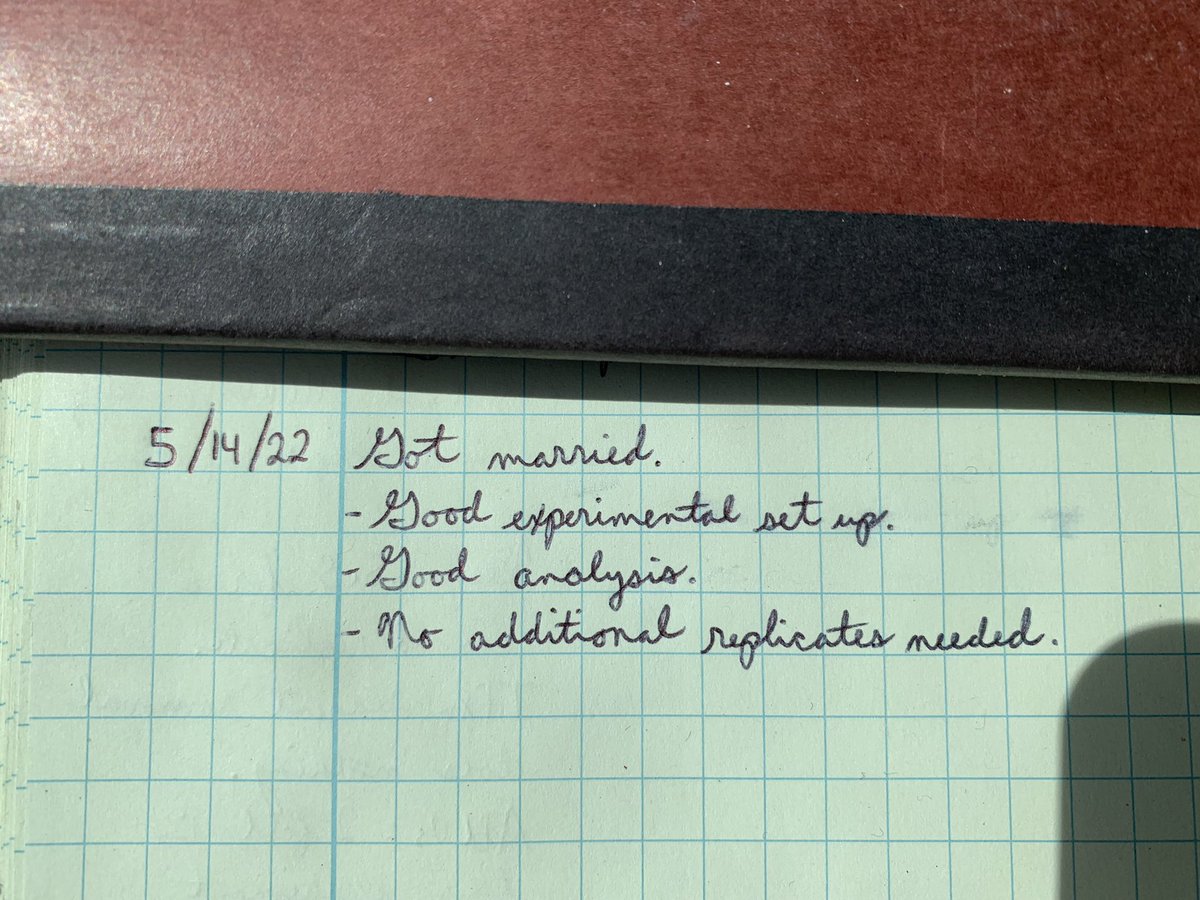 5/14/22 Got married.
- Good experimental set up.
- Good analysis.
- No additional replicates needed.